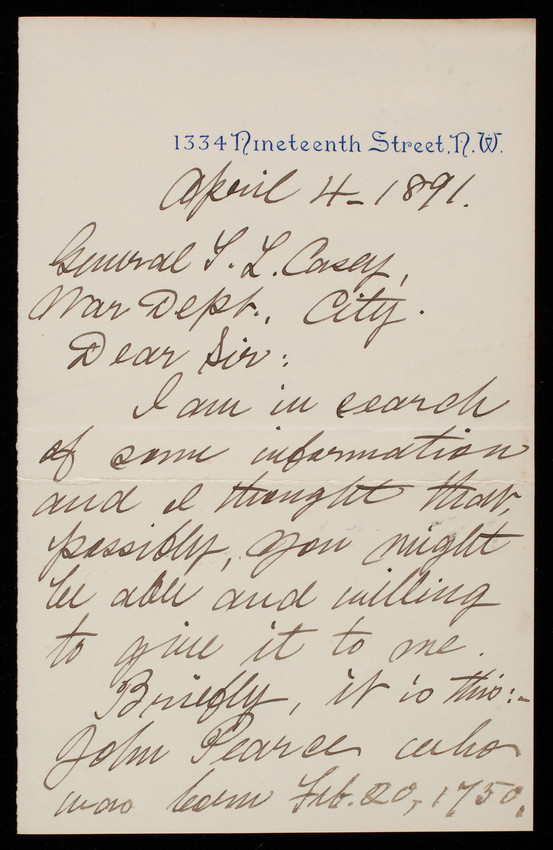 1334 Nineteenth Street, N.W.
April 4 - 1891.
General T. L. Casey,
War Dept., City.
Dear Sir:
I am in search
of some information
and I thought that,
possibly, you might
be able and willing
to give it to me.
Briefly, it is this:-
John Pearce who
was born Feb. 20, 1750,